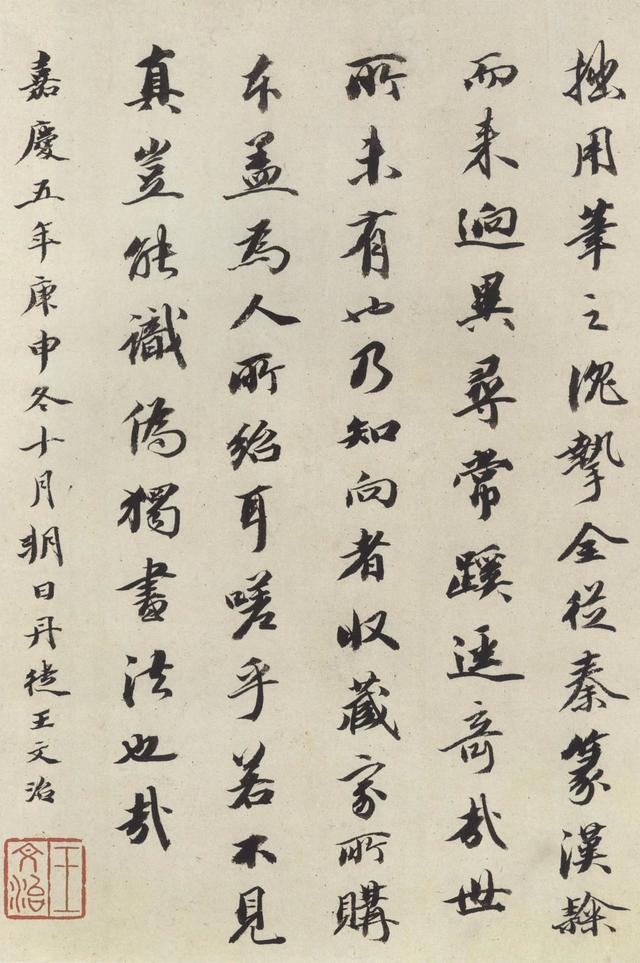 拙用筆之沉摯全從秦篆漢隸
而來逈異尋常蹊逕奇哉世
所未有也乃知向者收藏家所購
本蓋為人所紿耳嗟乎若不見
真豈能識偽獨書法也哉
嘉慶五年庚申冬十月朔日丹徒王文治
王文治